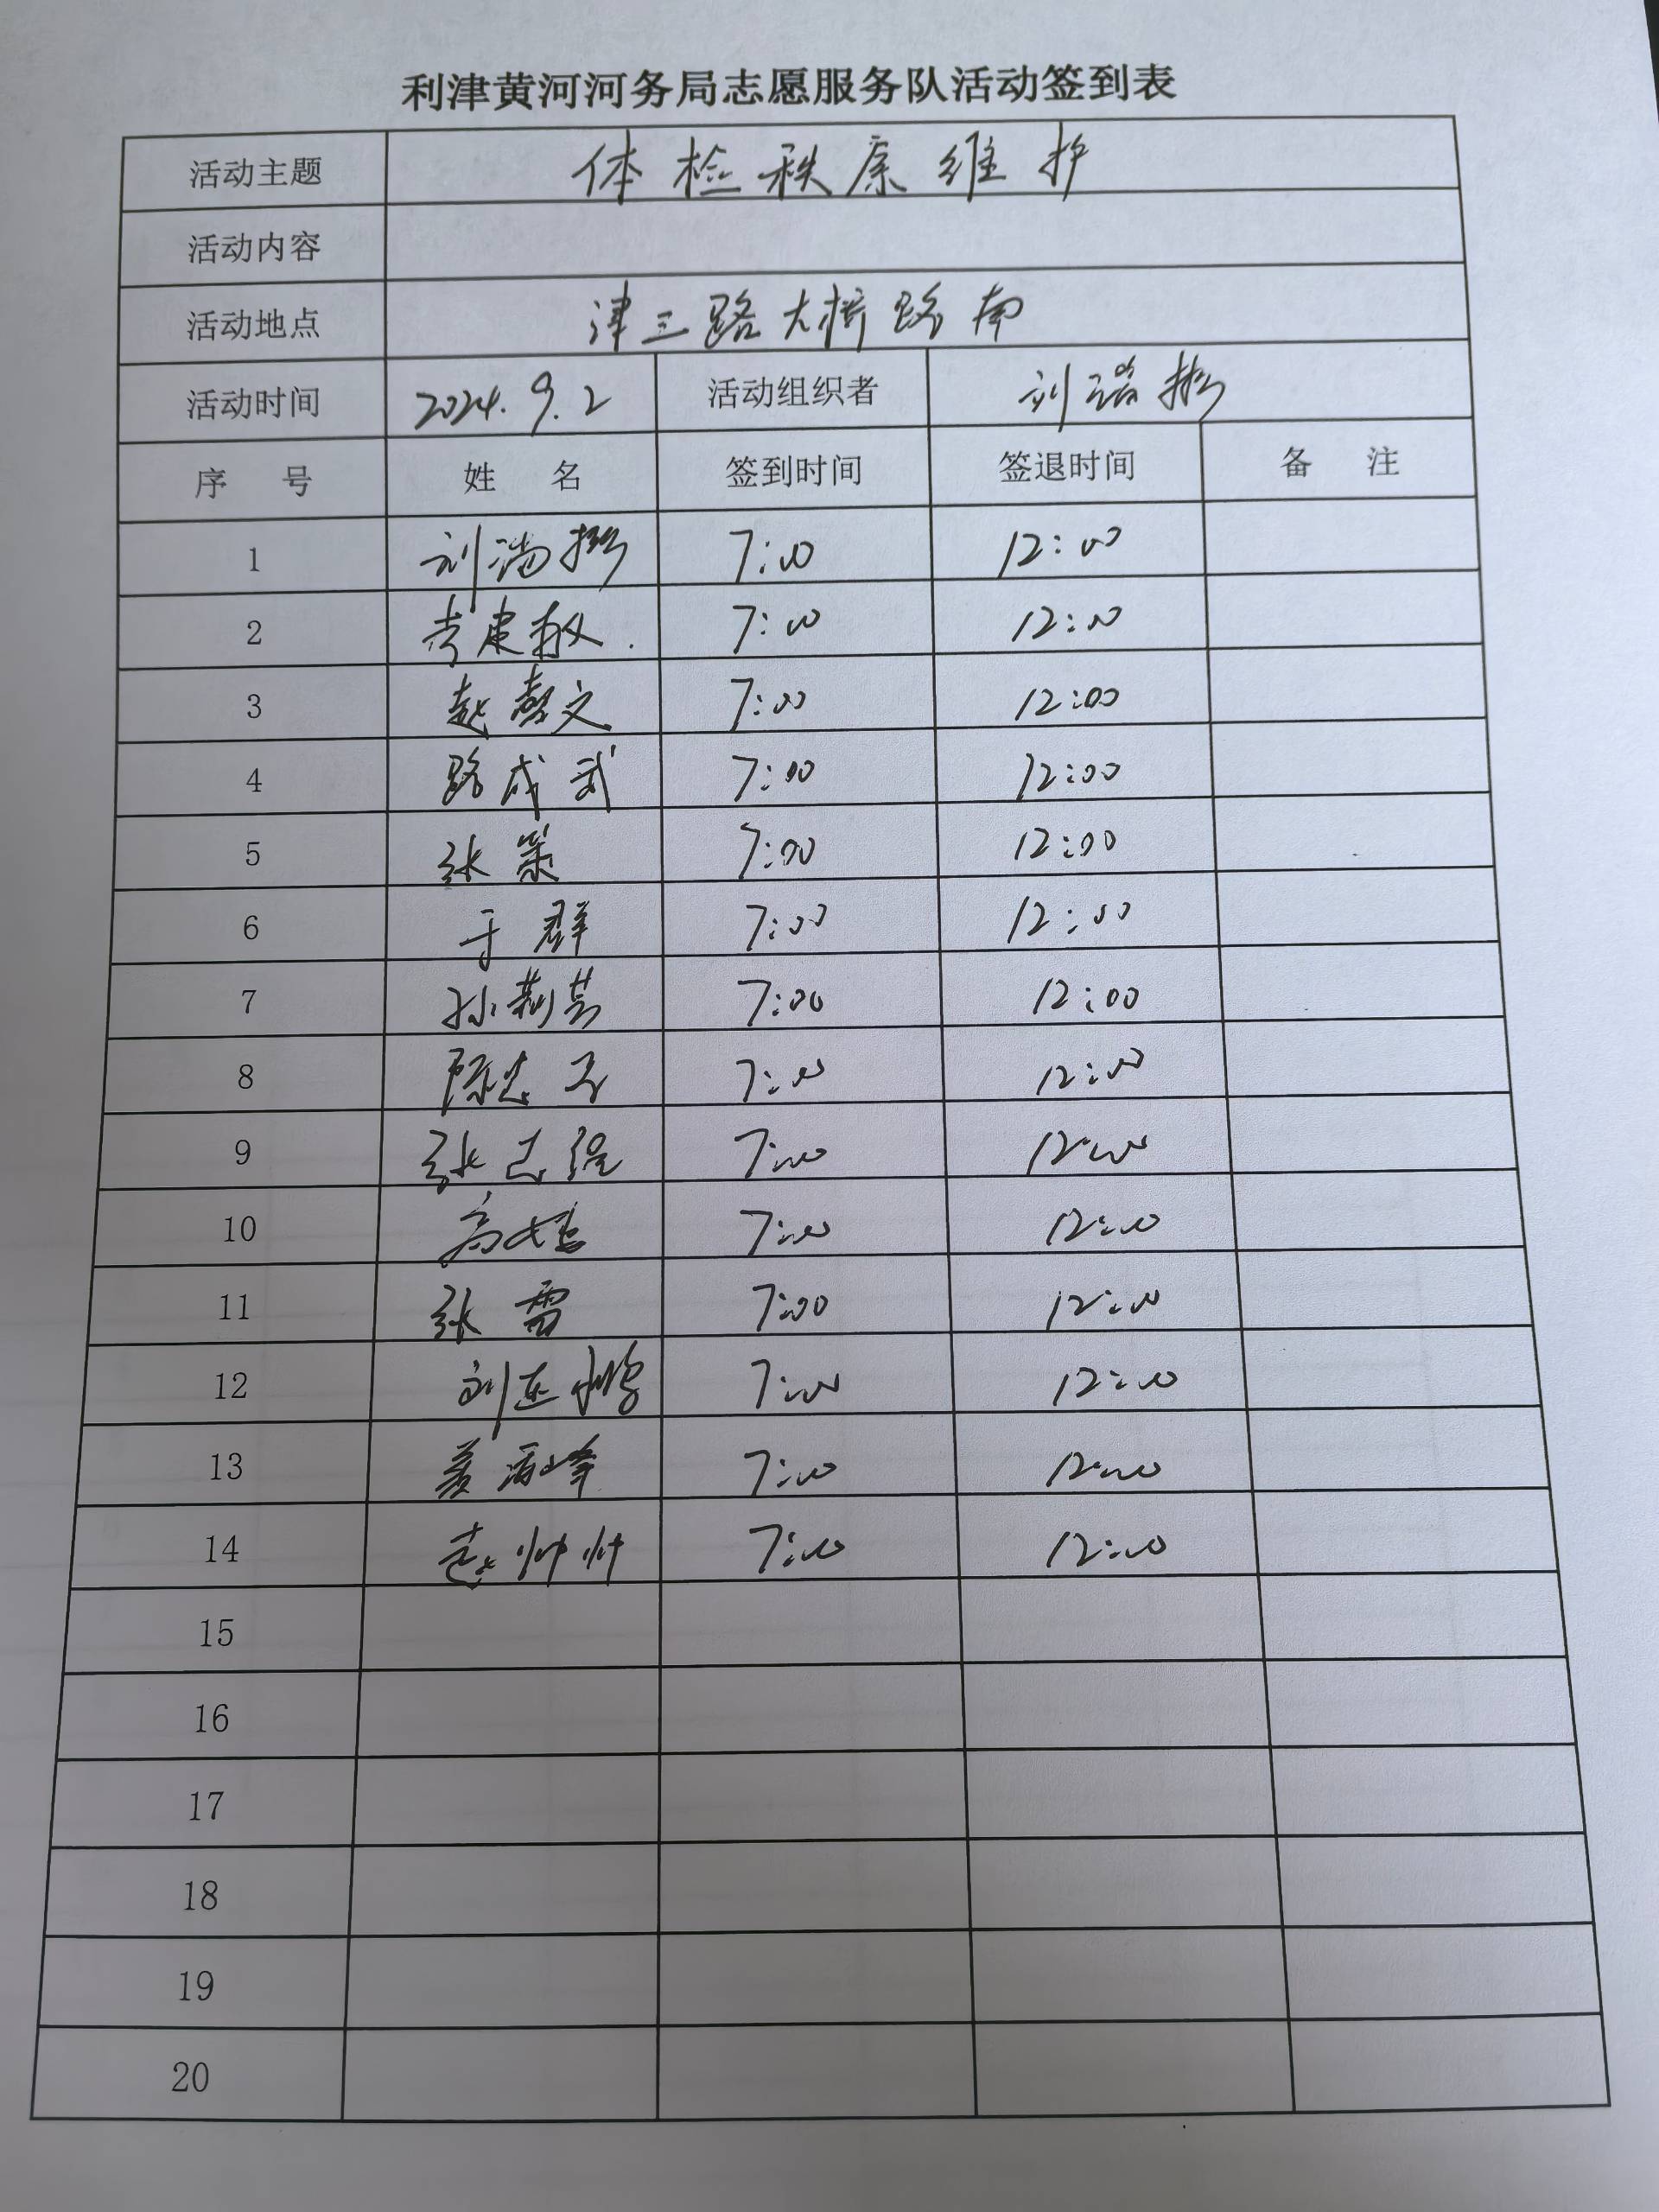 利津黄河河务局志愿服务队活动签到表
活动主题 体检秩序维护
活动内容
活动地点 津三路大桥路南
活动时间 2024.9.2 活动组织者 刘瑞彬
序 号 姓 名 签到时间 签退时间 备 注
1 刘瑞彬 7:00 12:00
2 7:00 12:00
3 赵 文 7:00 12:00
4 路成武 7:00 12:00
5 张策 7:00 12:00
6 于群 7:00 12:00
7 孙莉芸 7:00 12:00
8 陈志 7:00 12:00
9 张志强 7:00 12:00
10 高 7:00 12:00
11 张雷 7:00 12:00
12 刘连鹏 7:00 12:00
13 姜 峰 7:00 12:00
14 赵帅帅 7:00 12:00
15
16
17
18
19
20